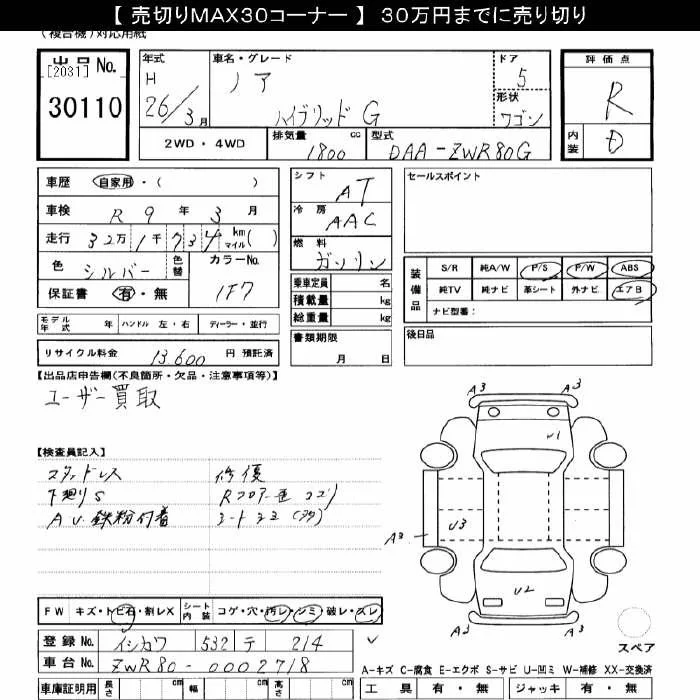 【 売切りMAX30コーナー 】 30万円までに売り切り
(複合機)対応用紙
出品 No.
[2031]
30110
年式
H
26/3月
車名・グレード
ノア
ハイブリッド G
ドア
5
形状
ワゴン
評価点
R
内装
D
2WD・4WD
排気量 cc
1800
型式
DAA-ZWR80G
車歴 自家用・( )
車検 R 9 年 3 月
走行 32万 1千 734 km マイル( )
色 シルバー 色替
カラーNo.
1F7
保証書 有・無
シフト
AT
冷房
AAC
燃料
ガソリン
乗車定員 名
積載量 kg
総重量 kg
書類期限
月 日
セールスポイント
装備品
S/R 純A/W P/S P/W ABS
純TV 純ナビ 革シート 外ナビ エアB
ナビ型番:
モデル年式 年 ハンドル 左・右 ディーラー・並行
後日品
リサイクル料金 13,600 円 預託済
【出品店申告欄(不良箇所・欠品・注意事項等)】
ユーザー買取
【検査員記入】
スタッドレス 修復
下廻りS Rフロアー色
AW鉄粉付着 シートシミ(多)
A3 A3
U1
U3
A3
U2
A3 A3
スペア
FW キズ・トビ石・割レX シート内装 コゲ・穴・汚レ・シミ・破レ・スレ
登録No. イシカワ 532 テ 214
車台No. ZWR80-0002718
A-キズ C-腐食 E-エクボ S-サビ U-凹ミ W-補修 XX-交換済
車庫証明用 長さ cm 幅 cm 高さ cm
工具 有・無 ジャッキ 有・無